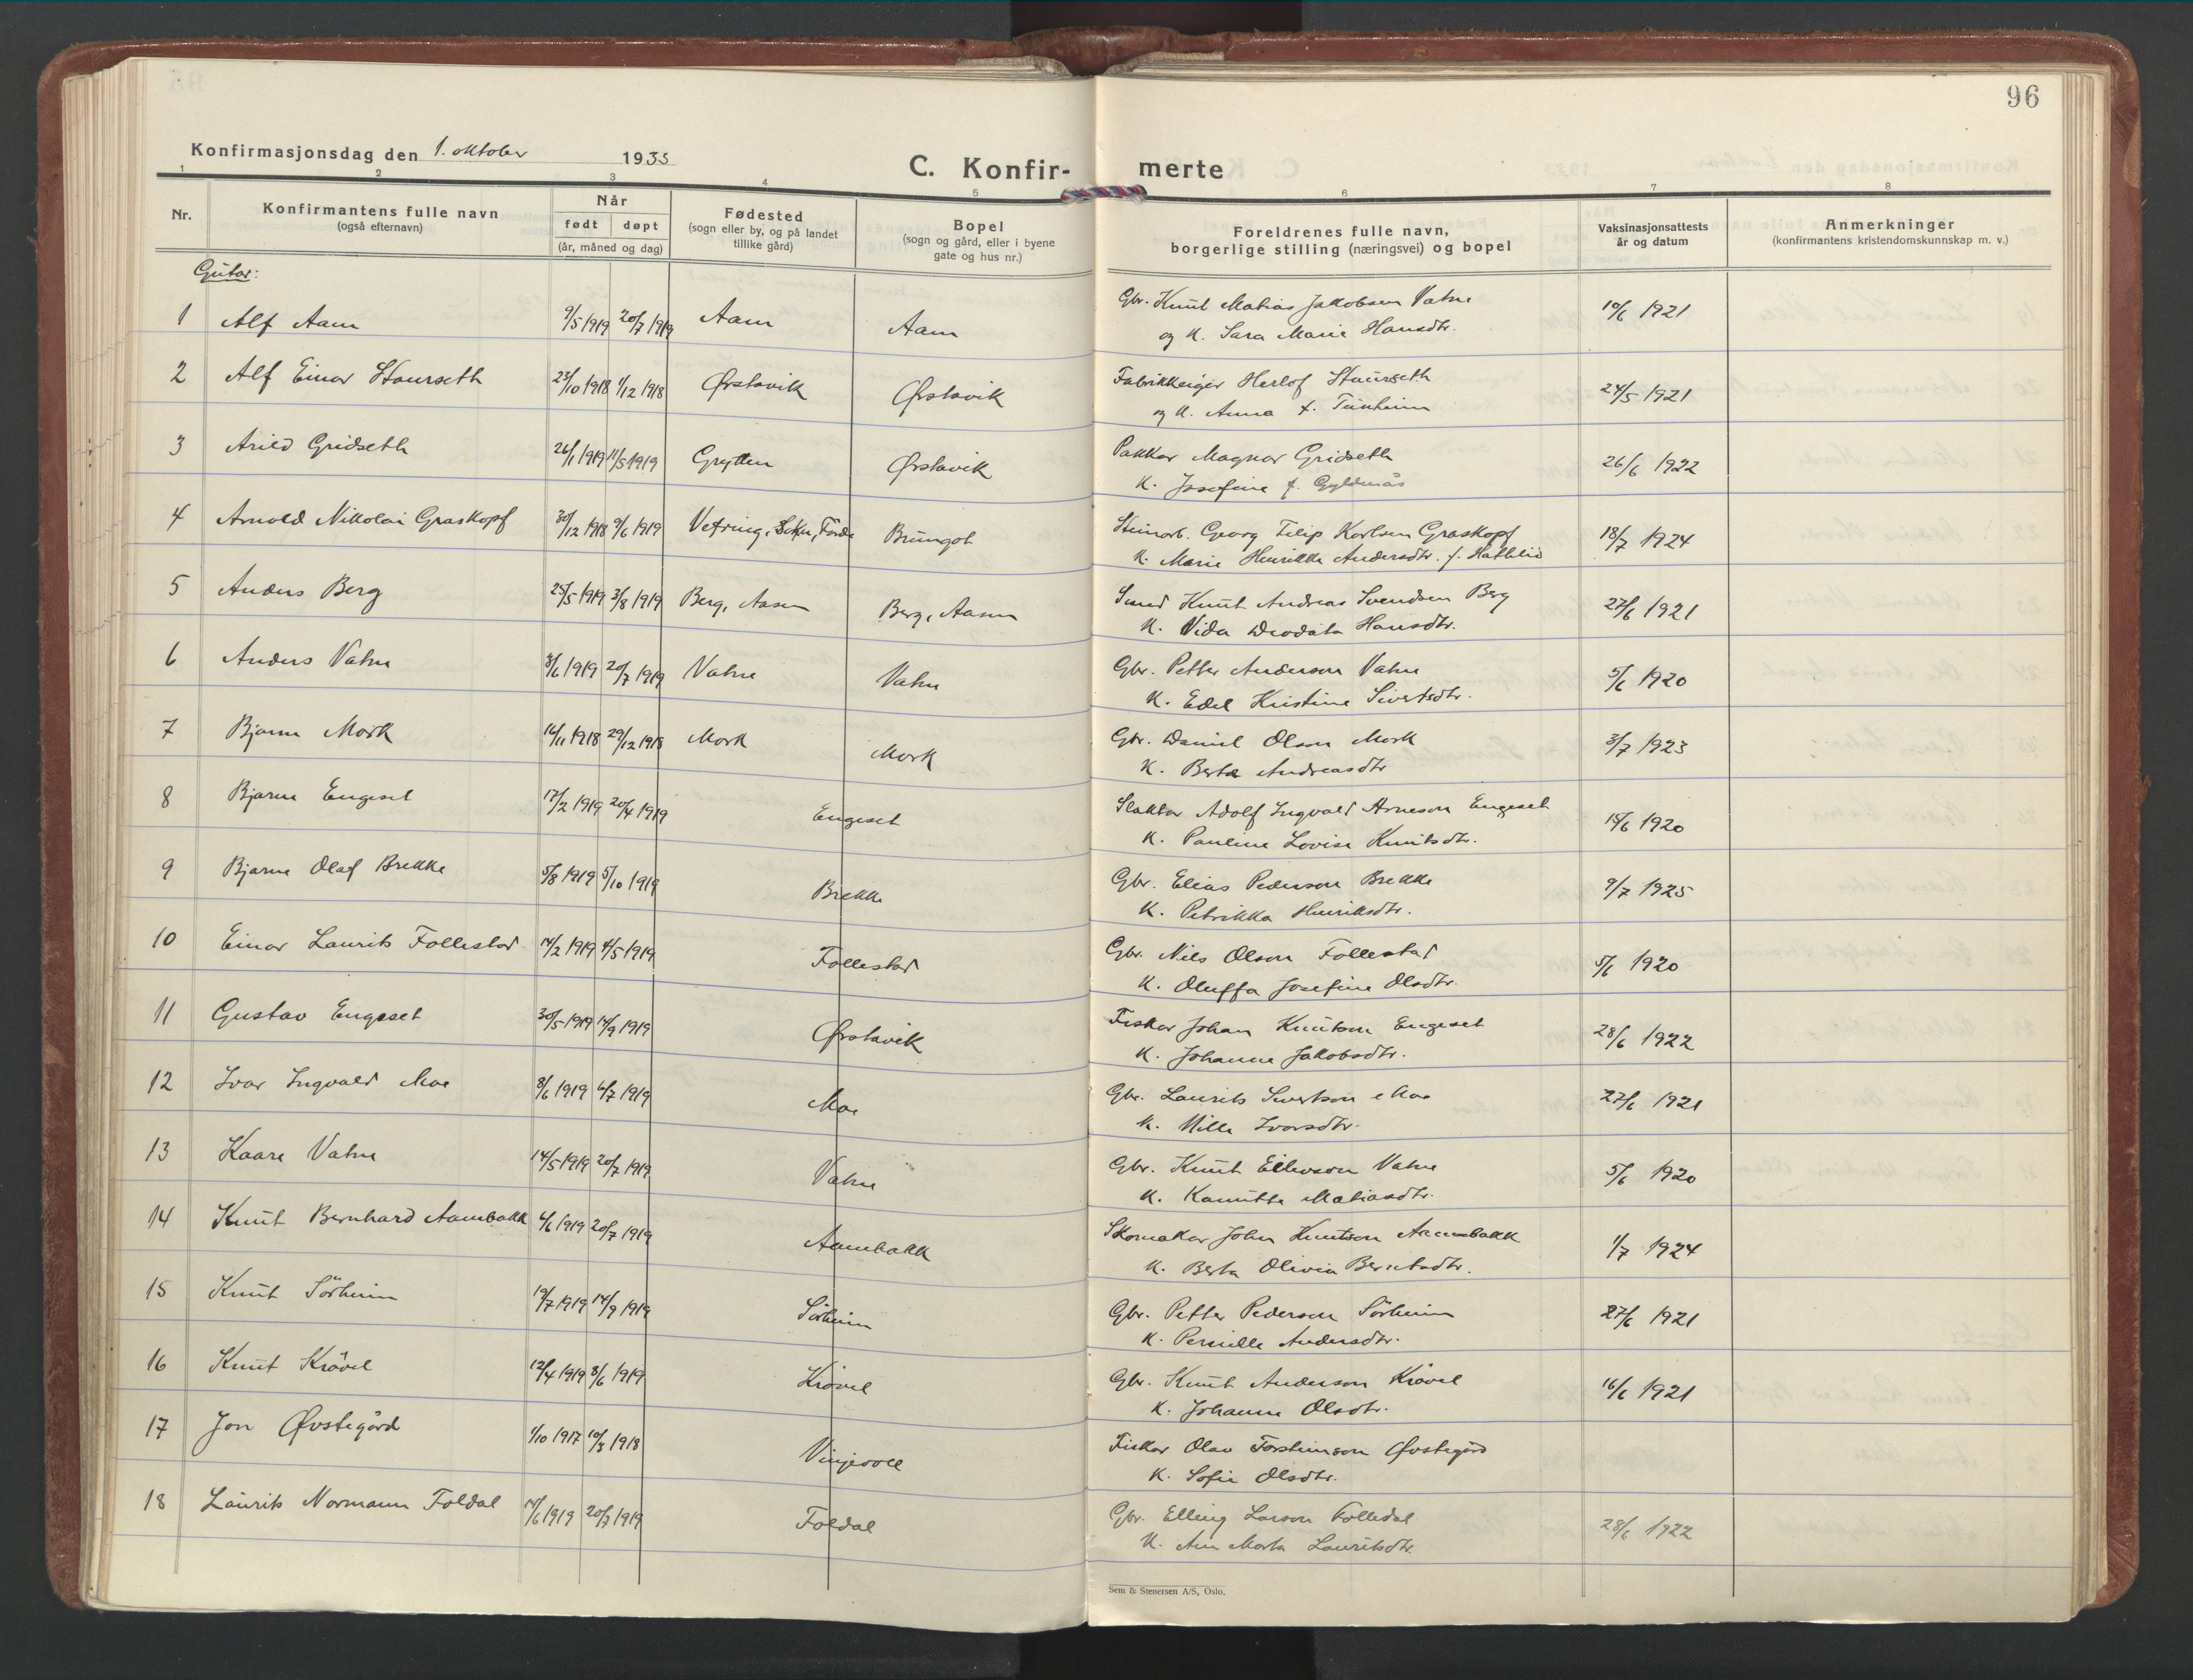 96
Konfirmasjonsdag den 1. oktober 1933
C. Konfir- merte
1 2 3 4 5 6 7 8
Nr.
Konfirmantens fulle navn
(også efternavn)
Når
født døpt
(år, måned og dag)
Fødested
(sogn eller by, og på landet
tillike gård)
Bopel
(sogn og gård, eller i byene
gate og hus nr.)
Foreldrenes fulle navn,
borgerlige stilling (næringsvei) og bopel
Vaksinasjonsattests
år og datum
Anmerkninger
(konfirmantens kristendomskunnskap m. v.)
Gutar:
1 Alf Aam 9/5 1919 20/7 1919 Aam Aam Gbr. Knut Matias Jakobsen Vatne 10/6 1921
og K. Sara Marie Hansdtr.
2 Alf Einar Staurseth 23/10 1918 1/12 1918 Ørstavik Ørstavik Fabrikkeiger Herlof Staurseth 24/5 1921
og K. Anna f. Tunheim
3 Arild Gridseth 26/1 1919 11/5 1919 Grytten Ørstavik Pakkar Magnar Gridseth 26/6 1922
K. Josefine f. Gyldenås
4 Arnold Nikolai Graskopf 30/12 1918 9/6 1919 Vefring, Sokn, Førde Brungot Steinarb. Georg Filip Karlsen Graskopf 18/7 1924
K. Marie Henrikke Andersdtr. f. Hatlelid
5 Anders Berg 25/5 1919 3/8 1919 Berg, Aasen Berg, Aasen Smed Knut Andreas Svendsen Berg 27/6 1921
K. Vida Deodata Hansdtr.
6 Anders Vatne 3/6 1919 20/7 1919 Vatne Vatne Gbr. Petter Anderson Vatne 5/6 1920
K. Edel Kristine Sivertsdtr.
7 Bjarne Mork 14/11 1918 29/12 1918 Mork Mork Gbr. Daniel Olson Mork 3/7 1923
K. Berta Andreasdtr
8 Bjarne Engeset 17/2 1919 20/4 1919 Engeset Slaktar Adolf Ingvald Arneson Engeset 15/6 1920
K. Pauline Lovise Knutsdtr.
9 Bjarne Olaf Brekke 5/8 1919 5/10 1919 Brekke Gbr. Elias Pederson Brekke 9/7 1925
K. Petrikka Henriksdtr.
10 Einar Laurits Follestad 14/2 1919 4/5 1919 Follestad Gbr. Nils Olson Follestad 5/6 1920
K. Oluffa Josefine Olsdtr.
11 Gustav Engeset 30/5 1919 14/9 1919 Ørstavik Fiskar Johan Knutson Engeset 28/6 1922
K. Johanne Jakobsdtr.
12 Ivar Ingvald Moe 8/6 1919 6/7 1919 Moe Gbr. Laurits Sivertson Moe 27/6 1921
K. Nille Ivarsdtr.
13 Kaare Vatne 14/5 1919 20/7 1919 Vatne Gbr. Knut Ellevson Vatne 5/6 1920
K. Kanutte Matiasdtr.
14 Knut Bernhard Aambakk 4/6 1919 20/7 1919 Aambakk Skomakar John Knutson Aambakk 1/7 1924
K. Berta Olivia Berntsdtr.
15 Knut Sörheim 19/7 1919 14/9 1919 Sörheim Gbr. Petter Pederson Sörheim 27/6 1921
K. Pernille Andersdtr.
16 Knut Krövel 12/4 1919 8/6 1919 Krövel Gbr. Knut Anderson Krövel 16/6 1921
K. Johanne Olsdtr.
17 Jon Øvstegård 1/10 1917 10/3 1918 Vinjevoll Fiskar Olav Torsteinson Øvstegård
K. Sofie Olsdtr.
18 Laurits Normann Foldal 14/6 1919 20/7 1919 Foldal Gbr. Elling Larson Folledal 28/6 1922
K. Ane Marta Lauritsdtr.
Sem & Stenersen A/S, Oslo.